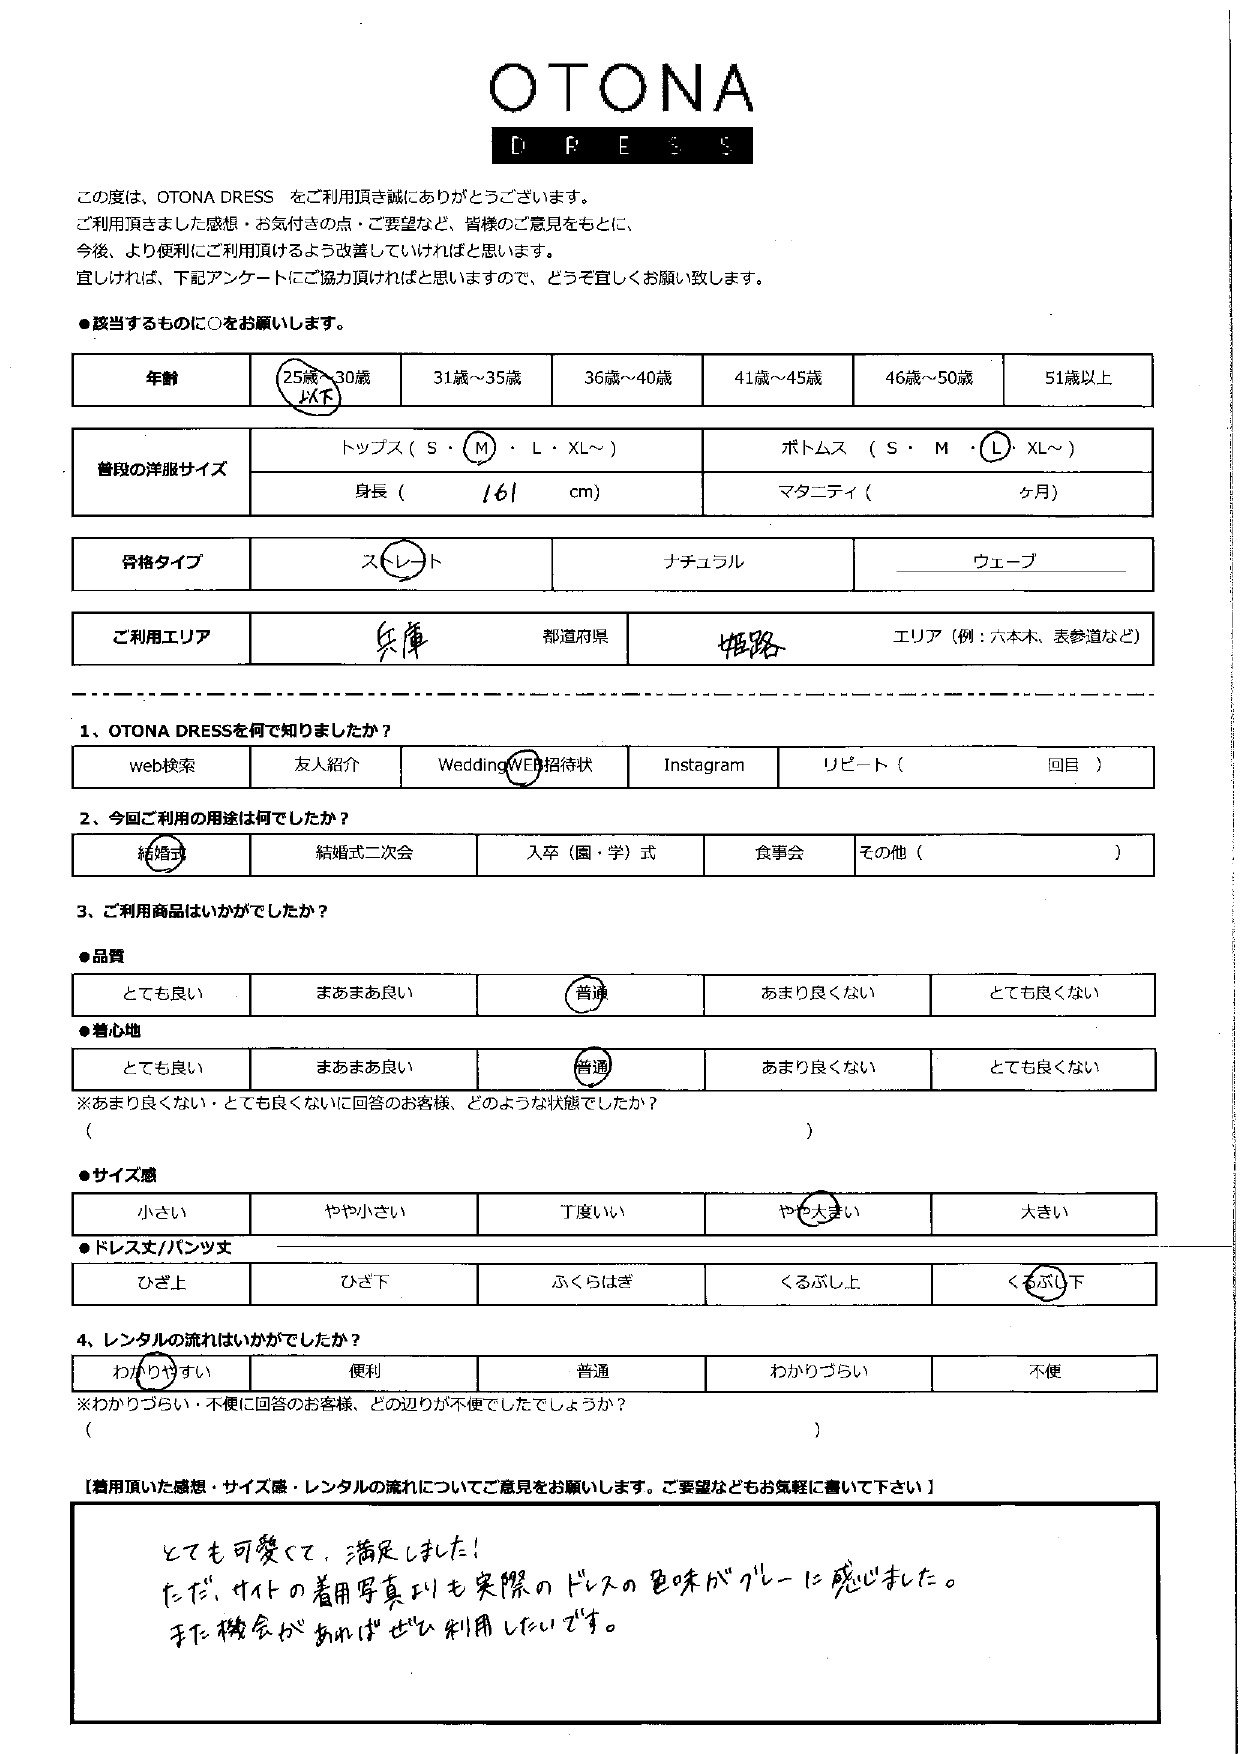 OTONA
DRESS
この度は、OTONA DRESS をご利用頂き誠にありがとうございます。
ご利用頂きました感想・お気付きの点・ご要望など、皆様のご意見をもとに、
今後、より便利にご利用頂けるよう改善していければと思います。
宜しければ、下記アンケートにご協力頂ければと思いますので、どうぞ宜しくお願い致します。
●該当するものに○をお願いします。
年齢 25歳～30歳 31歳～35歳 36歳～40歳 41歳～45歳 46歳～50歳 51歳以上
以下
普段の洋服サイズ トップス ( S ・ M ・ L ・ XL～ ) ボトムス ( S ・ M ・ L ・ XL～ )
身長 ( 161 cm) マタニティ ( ヶ月)
骨格タイプ ストレート ナチュラル ウェーブ
ご利用エリア 兵庫 都道府県 姫路 エリア（例：六本木、表参道など）
1、OTONA DRESSを何で知りましたか？
web検索 友人紹介 WeddingWEB招待状 Instagram リピート（ 回目 ）
2、今回ご利用の用途は何でしたか？
結婚式 結婚式二次会 入卒（園・学）式 食事会 その他（ ）
3、ご利用商品はいかがでしたか？
●品質
とても良い まあまあ良い 普通 あまり良くない とても良くない
●着心地
とても良い まあまあ良い 普通 あまり良くない とても良くない
※あまり良くない・とても良くないに回答のお客様、どのような状態でしたか？
（ ）
●サイズ感
小さい やや小さい 丁度いい やや大きい 大きい
●ドレス丈/パンツ丈
ひざ上 ひざ下 ふくらはぎ くるぶし上 くるぶし下
4、レンタルの流れはいかがでしたか？
わかりやすい 便利 普通 わかりづらい 不便
※わかりづらい・不便に回答のお客様、どの辺りが不便でしたでしょうか？
（ ）
【着用頂いた感想・サイズ感・レンタルの流れについてご意見をお願いします。ご要望などもお気軽に書いて下さい】
とても可愛くて、満足しました！
ただ、サイトの着用写真よりも実際のドレスの色味がグレーに感じました。
また機会があればぜひ利用したいです。